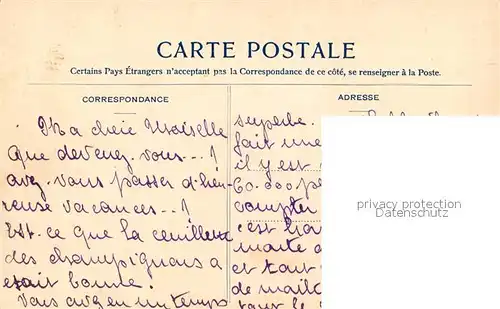 CARTE POSTALE
Certains Pays Étrangers n'acceptant pas la Correspondance de ce côté, se renseigner à la Poste.
CORRESPONDANCE
ADRESSE
Ma chère Maiselle
Que devenez-vous---!
avez-vous passer d'heu-
reuse vacances--!
Est-ce que la ceuillette
des champignons a
etait bonne!
Vous avez eu un temps
superbe.
fait une
il y est
60.000 pe
compter
c'est
monte a
et tout
de
tous le
privacy protection
Datenschutz